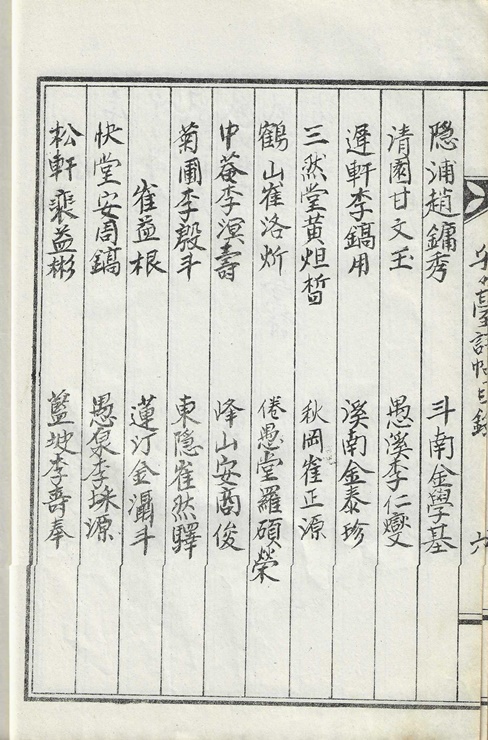 隐浦趙鏞秀 斗南金學基
清園甘文玉 愚溪李仁燮
遲軒李鎬用 溪南金泰珍
三然堂黄烜晳 秋岡崔正源
鶴山崔洛炘 倦愚堂羅碩榮
中菴李溟壽 峰山安商俊
菊圃李殷斗 東隐崔然驛
崔益根 蓮汀金灄斗
快堂安周鎬 愚泉李埰源
松軒裵益彬 藍坡李壽奉
臺詩帖目錄 六